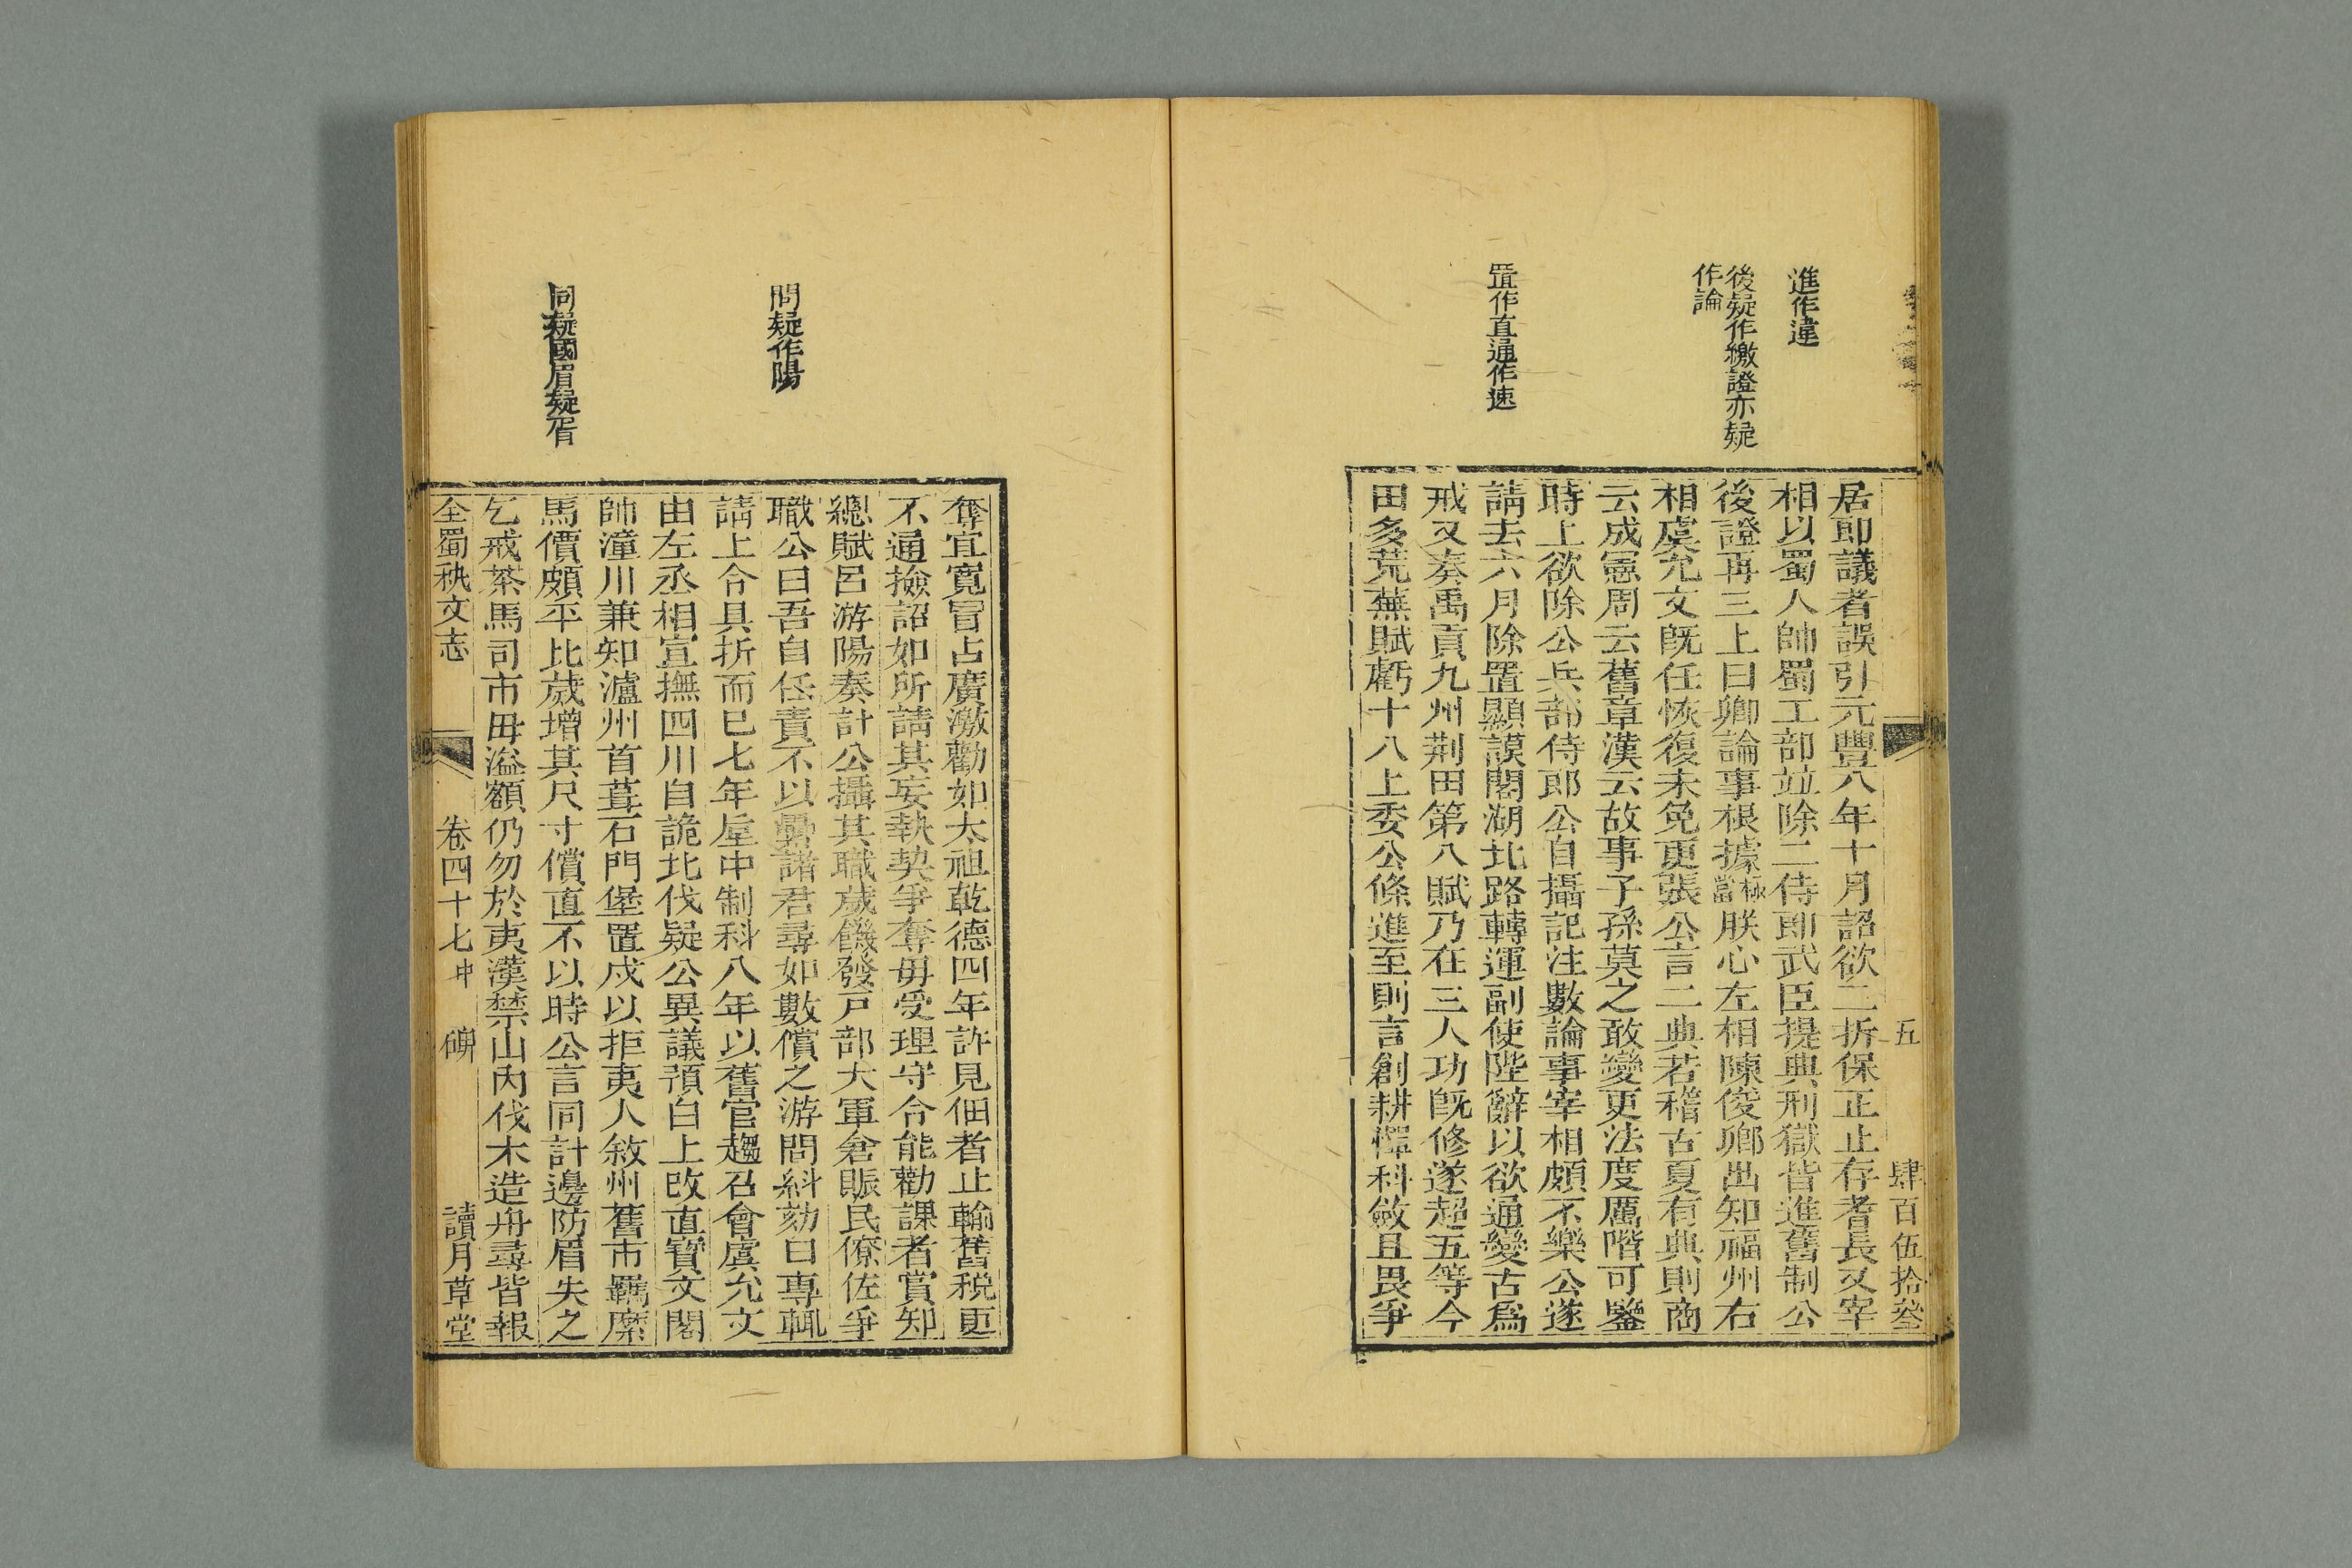 進作違
後疑作檄證亦疑
作論
置作直通作速
五
肆百伍拾叄
居即議者誤引元豐八年十月詔欲二折保正止存耆長又宰
相以蜀人帥蜀工部竝除二侍郎武臣提典刑獄皆進舊制公
後證再三上曰卿論事根據極當朕心左相陳俊卿出知福州右
相虞允文旣任恢復未免更張公言二典若稽古夏有典則商
云成憲周云舊章漢云故事子孫莫之敢變更法度厲階可鑒
時上欲除公兵部侍郎公自攝記注數論事宰相頗不樂公遂
請去六月除置顯謨閣湖北路轉運副使陛辭以欲通變古爲
戒又奏禹貢九州荆田第八賦乃在三人功旣修遂超五等今
田多荒蕪賦虧十八上委公條進至則言創耕憚科斂且畏爭
問疑作陽
同疑國眉疑胥
奪宜寬冒占廣激勸如太祖乾德四年許見佃者止輸舊稅更
不通撿詔如所請其妄執契爭奪毋受理守令能勸課者賞知
總賦呂游陽奏計公攝其職歲饑發戶部大軍倉賑民僚佐爭
職公曰吾自任責不以累諸君尋如數償之游問糾劾曰專輒
請上令具折而已七年虛中制科八年以舊官趨召會虞允文
由左丞相宣撫四川自詭北伐疑公異議預白上改直寶文閣
帥潼川兼知瀘州首葺石門堡置戍以拒夷人敘州舊市羈縻
馬價頗平比歲增其尺寸償直不以時公言同計邊防眉失之
乞戒茶馬司市毋溢額仍勿於夷漢禁山內伐木造舟尋皆報
全蜀秇文志
卷四十七中
碑
讀月草堂